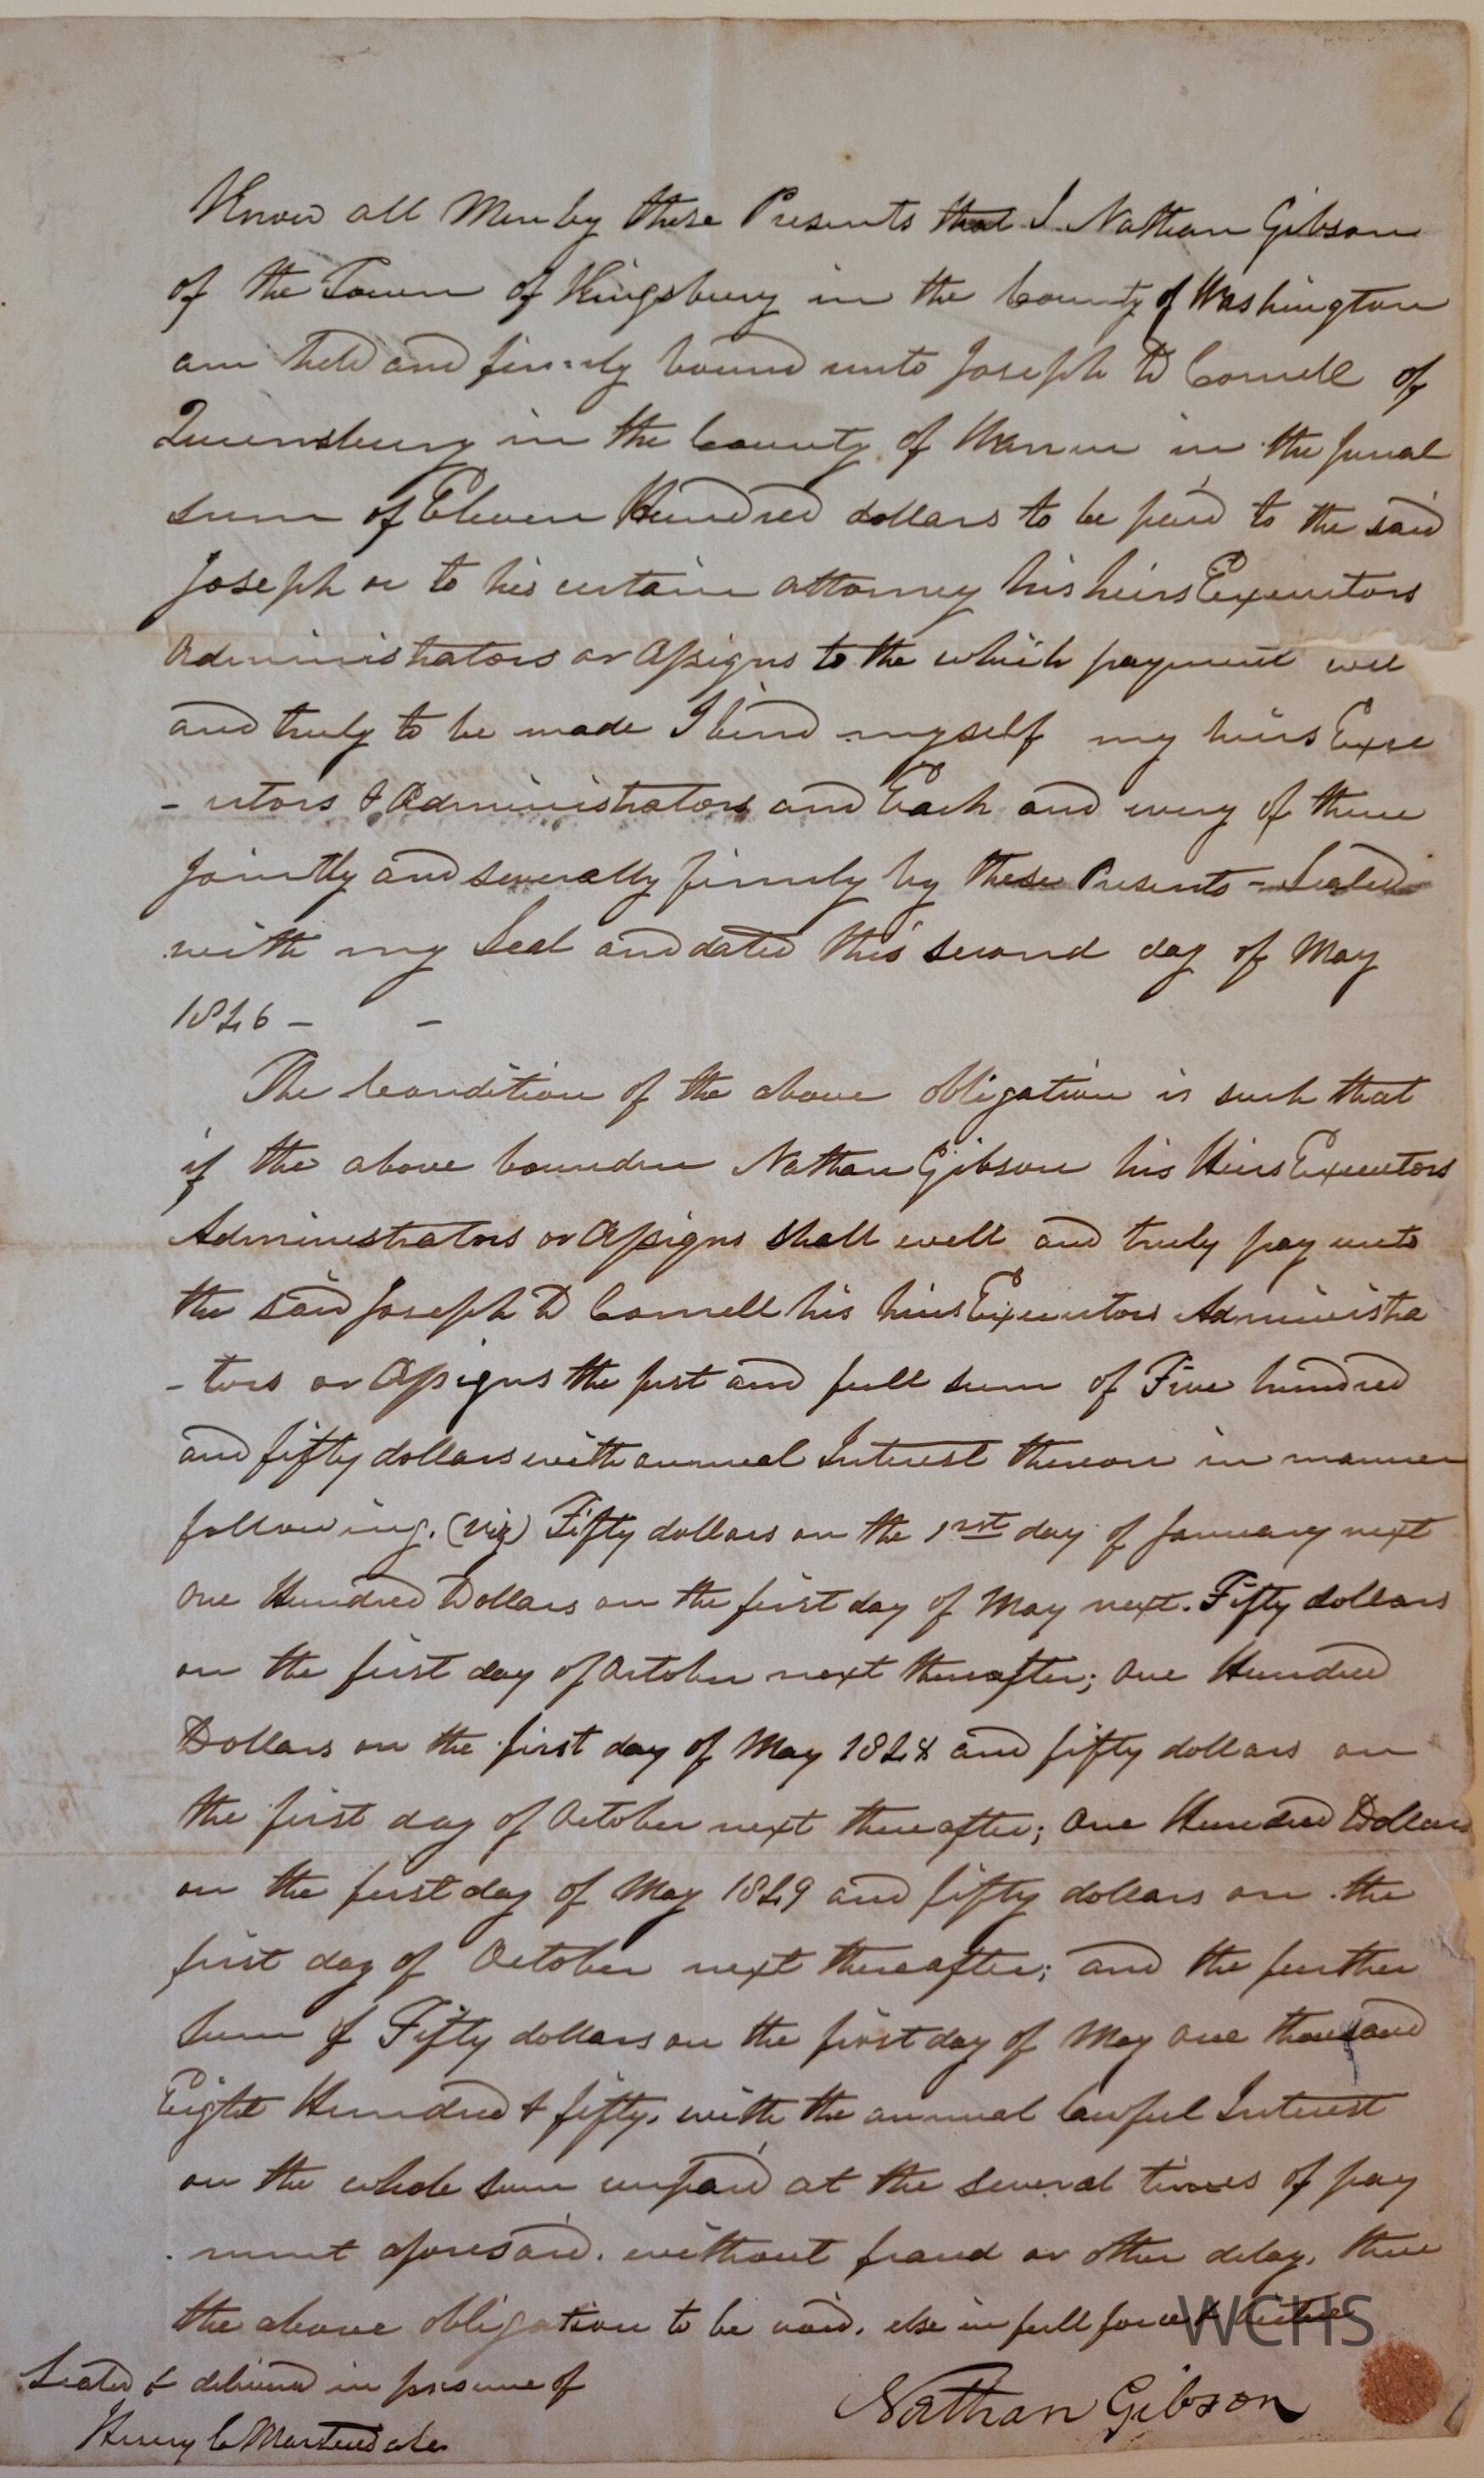 Know all Men by these Presents that I Nathan Gibson
of the Town of Kingsbury in the County of Washington
am held and firmly bound unto Joseph D Cornell of
Queensbury in the County of Warren in the penal
sum of Eleven Hundred dollars to be paid to the said
Joseph or to his certain attorney his heirs Executors
Administrators or Assigns to the which payment well
and truly to be made I bind myself my heirs Exec
- utors & Administrators and Each and every of them
Jointly and severally firmly by these Presents - Sealed
with my Seal and dated this second day of May
1826 - -
The Condition of the above obligation is such that
if the above bounden Nathan Gibson his Heirs Executors
Administrators or Assigns shall well and truly pay unto
the said Joseph D Cornell his heirs Executors Administra
- tors or Assigns the just and full sum of Five hundred
and fifty dollars with annual Interest thereon in manner
following. (viz) Fifty dollars on the 1rst day of January next
One Hundred Dollars on the first day of May next. Fifty dollars
on the first day of October next thereafter; One Hundred
Dollars on the first day of May 1828 and fifty dollars on
the first day of October next thereafter; One Hundred Dollars
on the first day of May 1829 and fifty dollars on the
first day of October next thereafter; and the further
Sum of Fifty dollars on the first day of May One thousand
Eight Hundred & fifty. with the annual lawful Interest
on the whole sum unpaid at the several times of pay
- ment aforesaid. without fraud or other delay. then
the above obligation to be void. else in full force & virtue
WCHS
Sealed & delivered in presence of
Nathan Gibson
Henry C Martindale